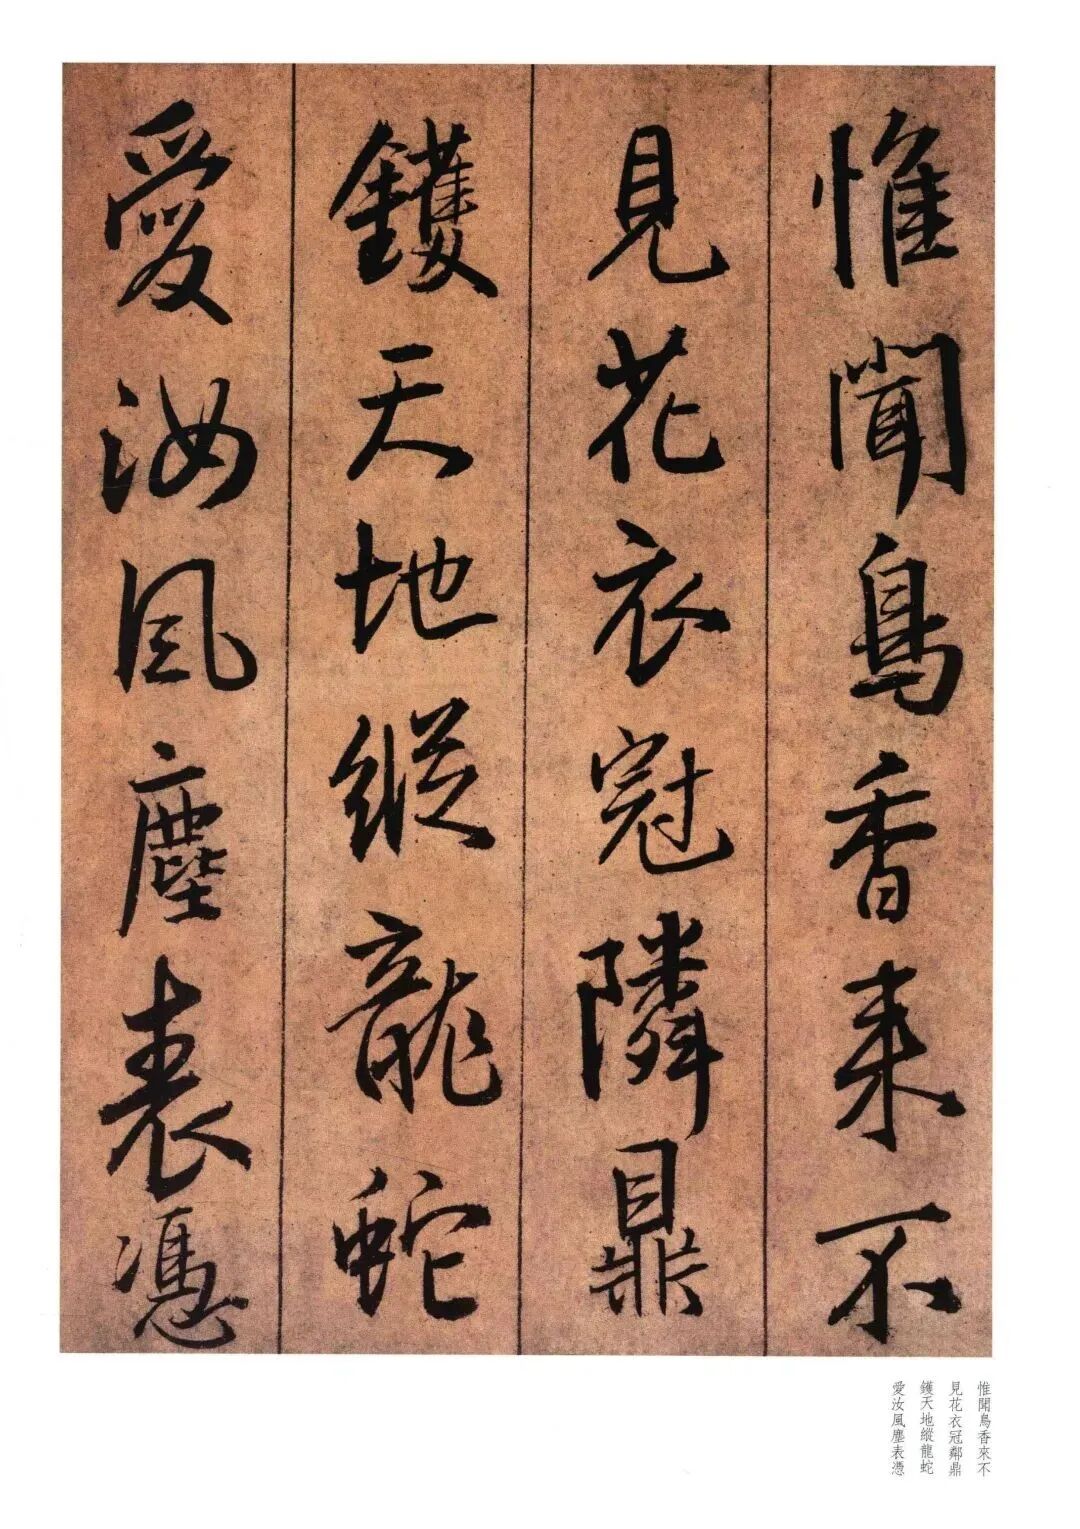 惟聞鳥香來不
見花衣冠隣鼎
鑊天地縱龍蛇
愛汝風塵表憑
惟聞鳥香來不
見花衣冠鄰鼎
鑊天地縱龍蛇
愛汝風塵表憑